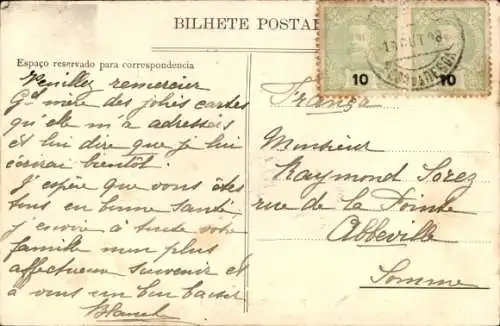 BILHETE POSTA
Espaço reservado para correspondencia
Veuillez remercier
Gd mère des jolies cartes
qu'elle m'a adressées
et lui dire que je lui
écrirai bientôt.
J'espère que vous êtes
tous en bonne santé,
j'envoie à toute votre
famille mon plus
affectueux souvenir et
à vous un bon baiser
Blanch
10
10
França
Monsieur
Raymond Sorez
rue de la Pointe
Abbeville
Somme